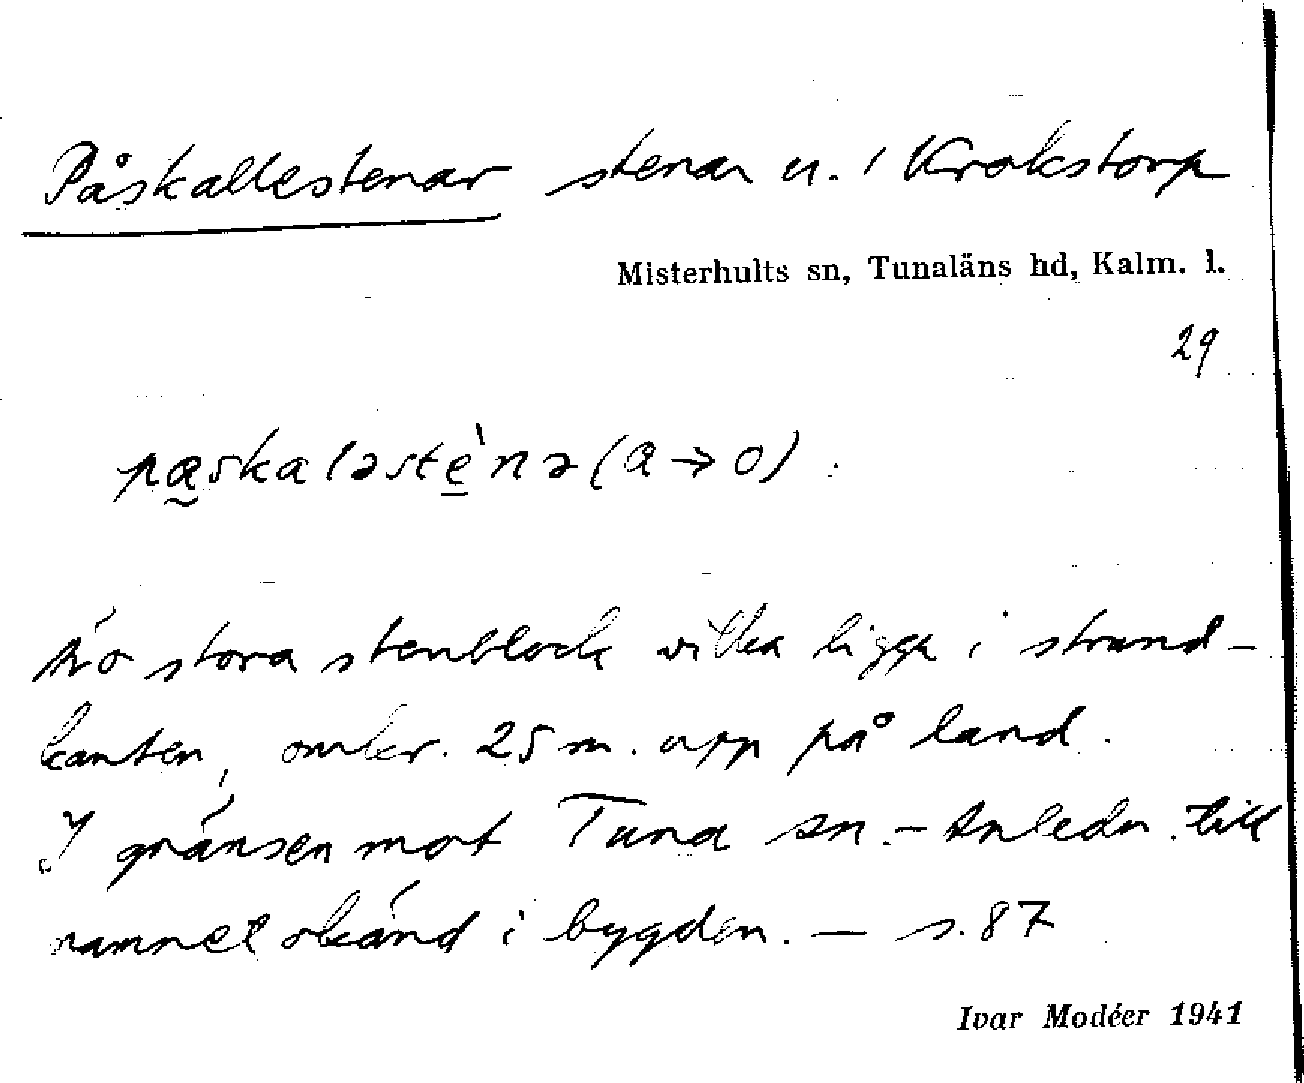 Påskallestenar stenar u. i Krokstorp
Misterhults sn, Tunaläns hd, Kalm. l.
29
paskaləstè̲nə (a → o)
Äro stora stenblock vilka ligga i strand-
kanten, omkr. 25 m. upp på land.
I gränsen mot Tuna sn. - Anledn. till
namnet okänd i bygden. — s. 87
Ivar Modéer 1941